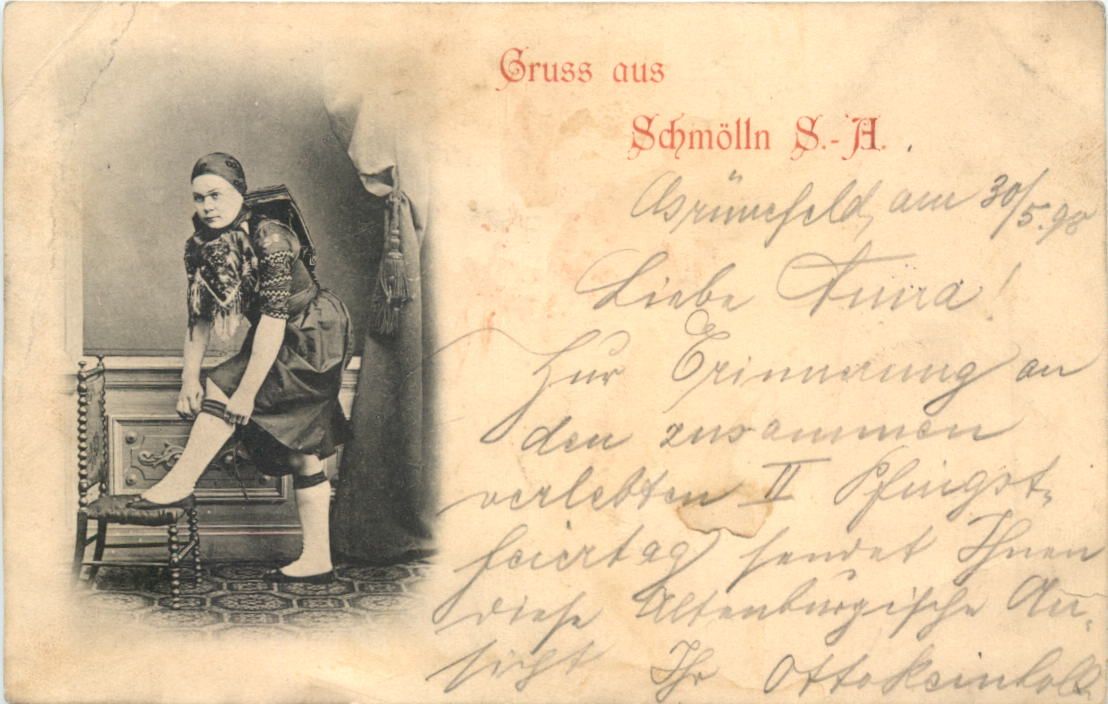 Gruss aus
Schmölln S.-A.
Grünefeld, am 30/5.98
Liebe Anna!
Zur Erinnerung an
den zusammen
verlebten II Pfingst-
feiertag sendet Ihnen
diese Altenburgische An-
sicht Ihr Otto